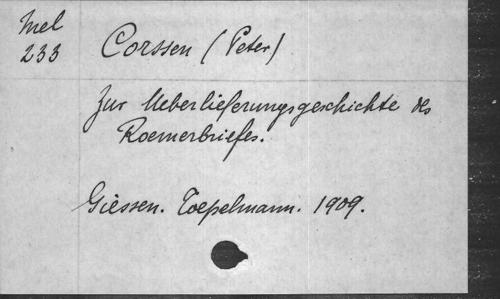 Mel
233
Corssen (Peter)
Zur Ueberlieferungsgeschichte des
Roemerbriefes.
Giessen. Toepelmann. 1909.